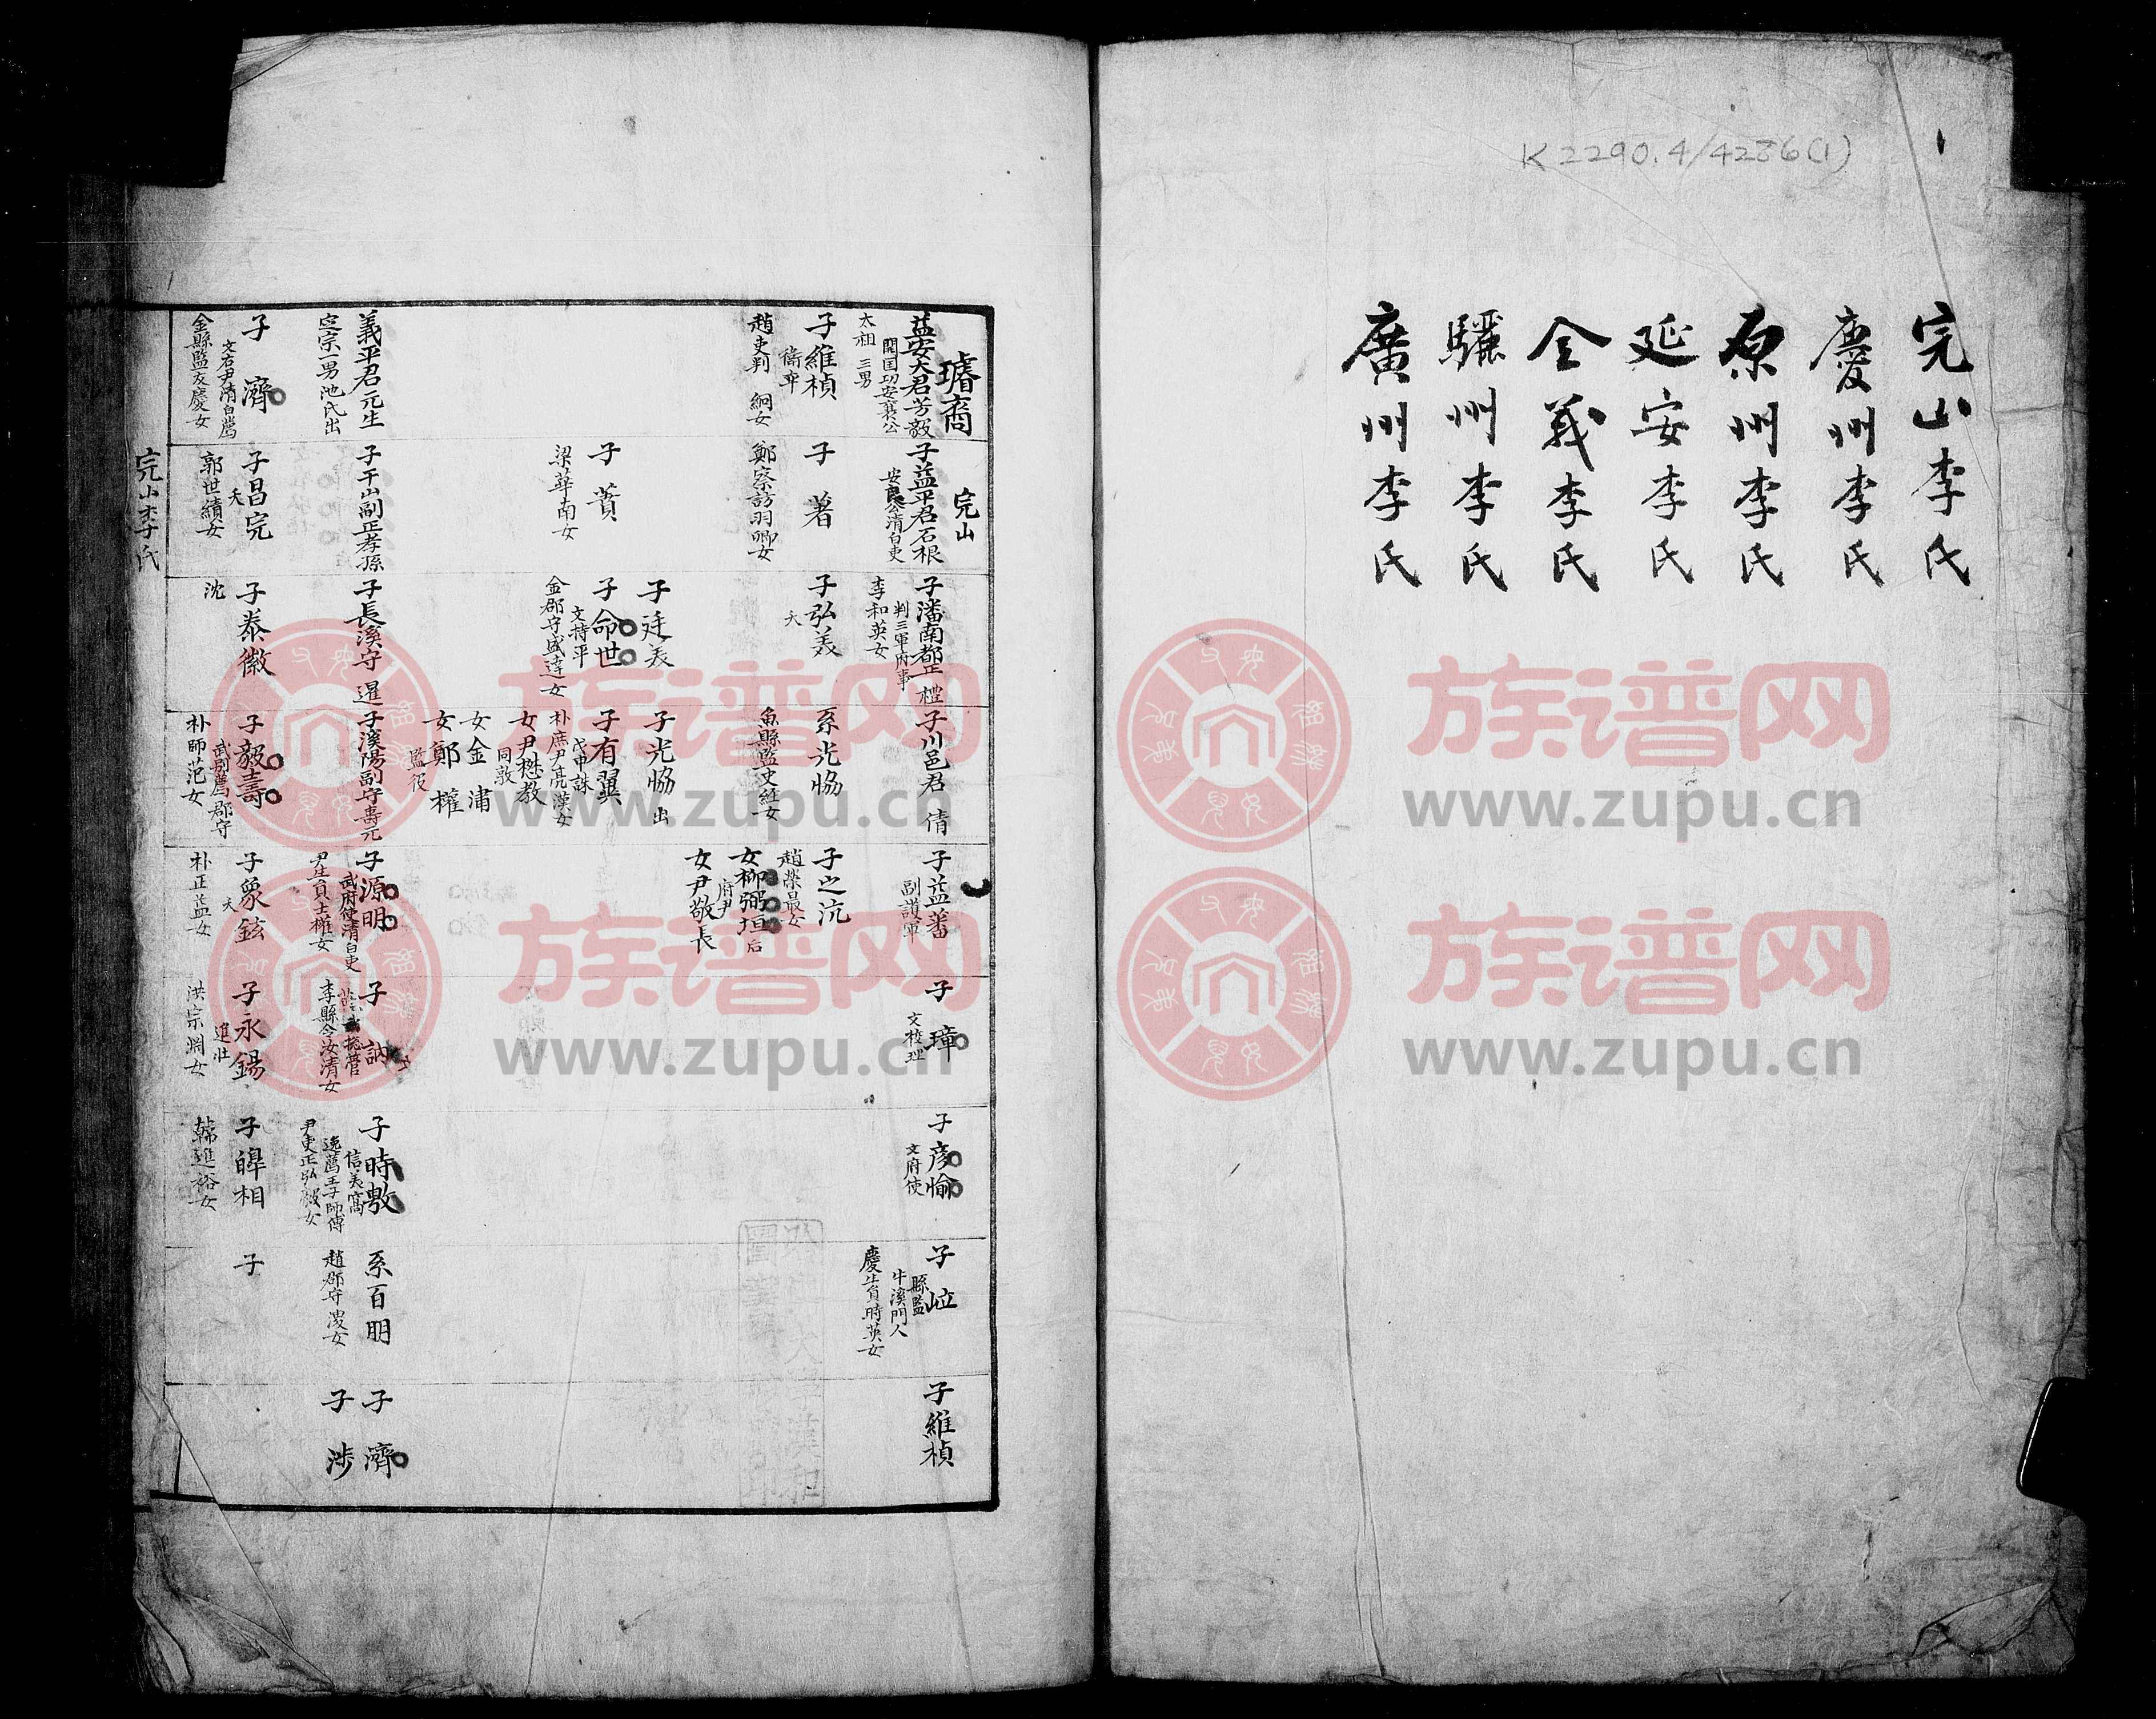 K2290.4/4286(1)
完山李氏
慶州李氏
原州李氏
延安李氏
全義李氏
驪州李氏
廣州李氏
璿裔
完山
益安大君芳毅
開国功安襄公
太祖三男
子益平君石根
安良公清白吏
子潘南都正 禮
判三軍府事
李和英女
子川邑君 倩
子益蕃
副護軍
子 璋
文校理
子彦愉
文府使
子 岦
縣監
牛溪門人
慶生員時英女
子維楨
子維楨
趙吏判 絅女
子 著
鄭察訪羽卿女
子弘義
夭
系光協
魚縣監史經女
子之沆
趙榮最女
女柳弼垣后
府尹
女尹敬長
子廷義
子光協出
子 蕡
梁華南女
子命世
文持平
金郡守盛達女
子有翼
戊申誅
朴庶尹亮漢女
女尹懋教
同敦
女金 潚
女鄭 權
監役
義平君元生
定宗一男池氏出
子干山副正孝孫
子長溪守 暹
子溪陽副守壽元
子源明
武府使清白吏
尹生員士權女
子 訥
李縣令汝清女
子時敷
信美窩
逸薦王子師傅
尹吏正弘毅女
系百朋
趙郡守 溭女
子 濟
子 涉
子 濟
文右尹清白薦
金縣監友慶女
子昌完
夭
郭世績女
子泰徽
沈
子毅壽
武別薦郡守
朴師范女
子象鉉
夭
朴正益女
子永錫
進壯
洪宗淵女
子皥相
韓進裕女
子
完山李氏
族谱网
www.zupu.cn
族谱网
www.zupu.cn
族谱网
www.zupu.cn
族谱网
www.zupu.cn